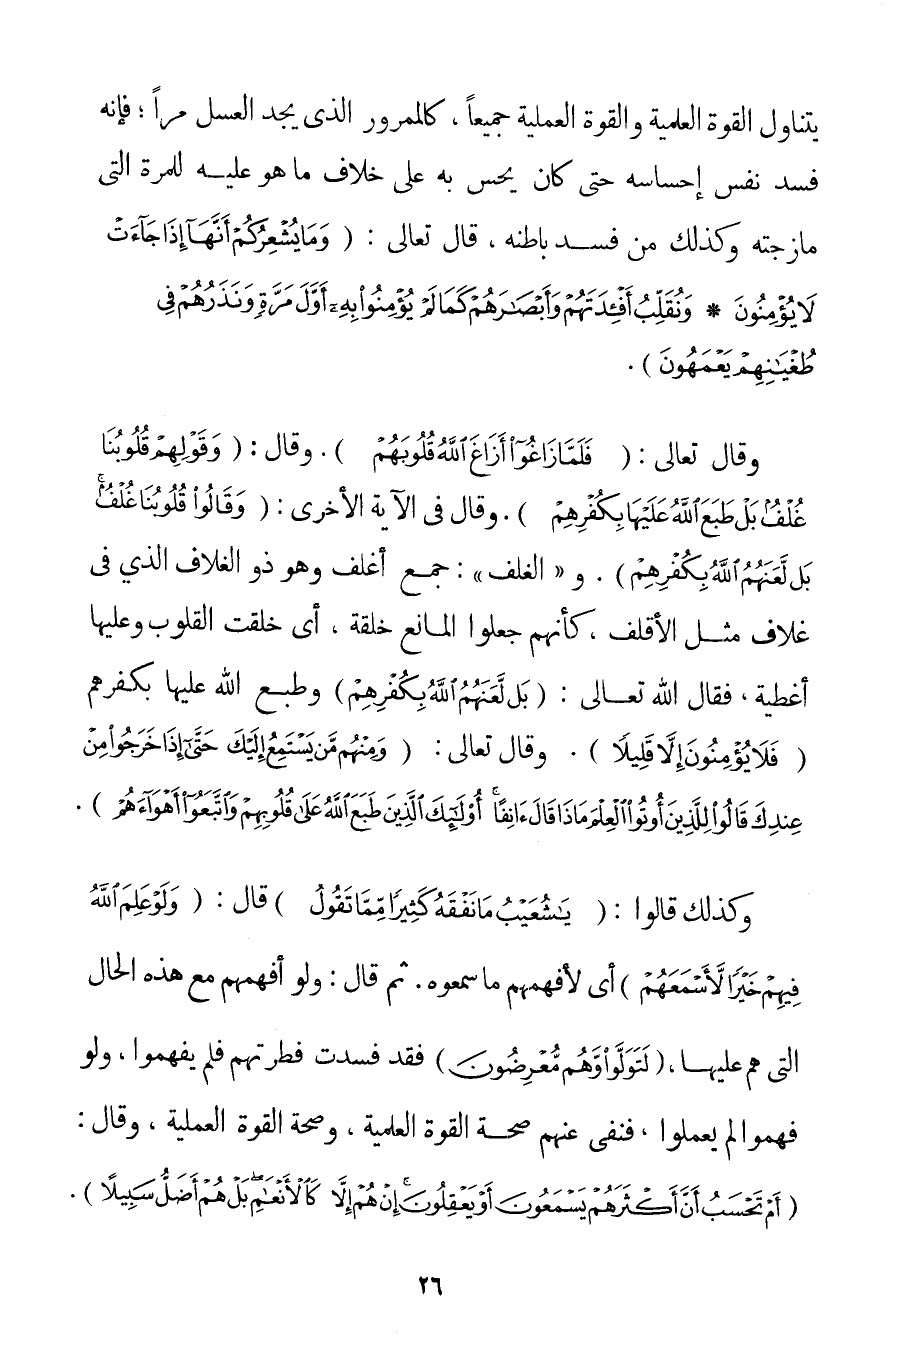 يتناول القوة العلمية والقوة العملية جميعاً ، كالممرور الذى يجد العسل مراً ؛ فإنه
فسد نفس إحساسه حتى كان يحس به على خلاف ما هو عليه للمرة التى
مازجته وكذلك من فسد باطنه ، قال تعالى : ( وَمَا يُشْعِرُكُمْ أَنَّهَآ إِذَا جَآءَتْ
لَا يُؤْمِنُونَ * وَنُقَلِّبُ أَفْـِٔدَتَهُمْ وَأَبْصَـٰرَهُمْ كَمَا لَمْ يُؤْمِنُوا۟ بِهِۦٓ أَوَّلَ مَرَّةٍ وَنَذَرُهُمْ فِى
طُغْيَـٰنِهِمْ يَعْمَهُونَ ) .
وقال تعالى : ( فَلَمَّا زَاغُوٓا۟ أَزَاغَ ٱللَّهُ قُلُوبَهُمْ ) . وقال : ( وَقَوْلِهِمْ قُلُوبُنَا
غُلْفٌۢ بَلْ طَبَعَ ٱللَّهُ عَلَيْهَا بِكُفْرِهِمْ ) . وقال فى الآية الأخرى : ( وَقَالُوا۟ قُلُوبُنَا غُلْفٌۢ ۚ
بَل لَّعَنَهُمُ ٱللَّهُ بِكُفْرِهِمْ ) . و « الغلف » : جمع أغلف وهو ذو الغلاف الذي فى
غلاف مثل الأقلف ، كأنهم جعلوا المانع خلقة ، أى خلقت القلوب وعليها
أغطية ، فقال الله تعالى : ( بَل لَّعَنَهُمُ ٱللَّهُ بِكُفْرِهِمْ ) وطبع الله عليها بكفرهم
( فَلَا يُؤْمِنُونَ إِلَّا قَلِيلًا ) . وقال تعالى : ( وَمِنْهُم مَّن يَسْتَمِعُ إِلَيْكَ حَتَّىٰٓ إِذَا خَرَجُوا۟ مِنْ
عِندِكَ قَالُوا۟ لِلَّذِينَ أُوتُوا۟ ٱلْعِلْمَ مَاذَا قَالَ ءَانِفًا ۚ أُو۟لَـٰٓئِكَ ٱلَّذِينَ طَبَعَ ٱللَّهُ عَلَىٰ قُلُوبِهِمْ وَٱتَّبَعُوٓا۟ أَهْوَآءَهُمْ ) .
وكذلك قالوا : ( يَـٰشُعَيْبُ مَا نَفْقَهُ كَثِيرًا مِّمَّا تَقُولُ ) قال : ( وَلَوْ عَلِمَ ٱللَّهُ
فِيهِمْ خَيْرًا لَّأَسْمَعَهُمْ ) أى لأفهمهم ما سمعوه . ثم قال : ولو أفهمهم مع هذه الحال
التى هم عليها ، ( لَتَوَلَّوا۟ وَّهُم مُّعْرِضُونَ ) فقد فسدت فطرتهم فلم يفهموا ، ولو
فهموا لم يعملوا ، فنفى عنهم صحة القوة العلمية ، وصحة القوة العملية ، وقال :
( أَمْ تَحْسَبُ أَنَّ أَكْثَرَهُمْ يَسْمَعُونَ أَوْ يَعْقِلُونَ ۚ إِنْ هُمْ إِلَّا كَٱلْأَنْعَـٰمِ ۖ بَلْ هُمْ أَضَلُّ سَبِيلًا ) .
٢٦